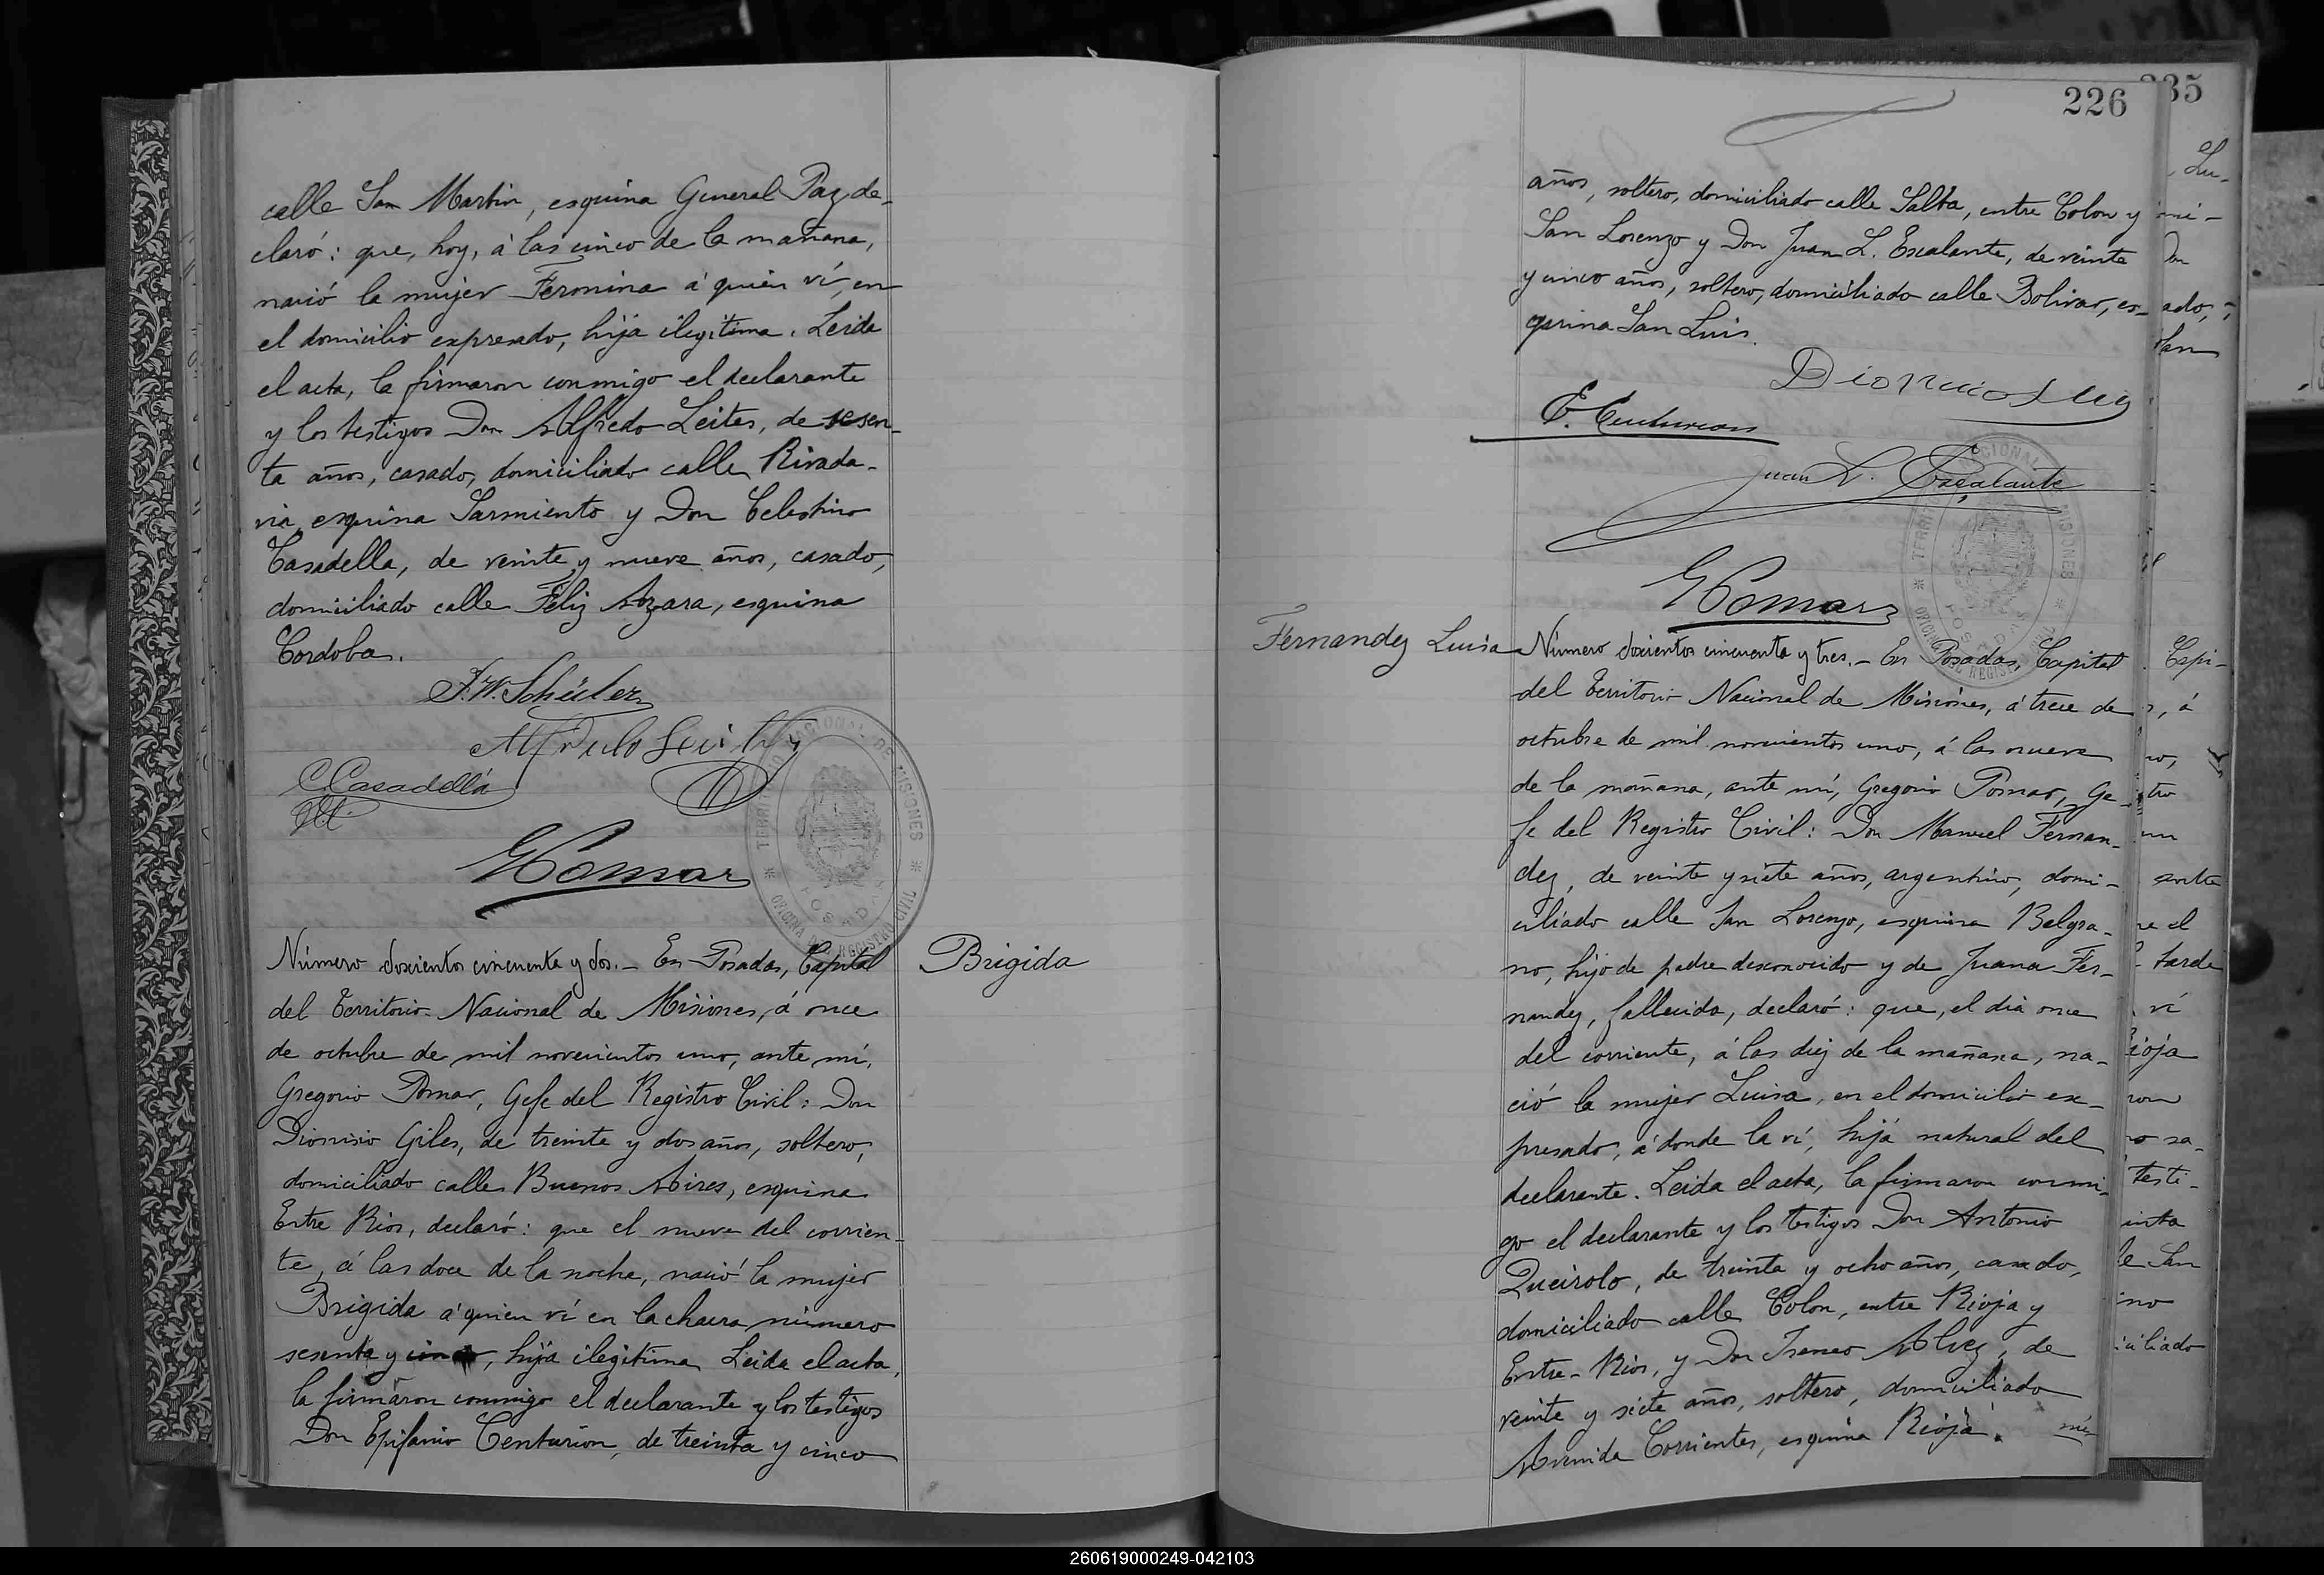 calle San Martin, esquina General Paz, de-
claró: que, hoy, á las cinco de la mañana,
nació la mujer Fermina á quien ví, en
el domicilio expresado, hija ilegitima. Leida
el acta, la firmaron conmigo el declarante
y los testigos Don Alfredo Leites, de sesen-
ta años, casado, domiciliado calle Rivada-
via, esquina Sarmiento y Don Celestino
Casadella, de veinte y nueve años, casado,
domiciliado calle Feliz Azara, esquina
Cordoba.
F. W. Schüler
Alfredo Leites
C. Casadellá
GPomar
TERRITORIO NACIONAL DE MISIONES
POSADAS
OFICINA DEL REGISTRO CIVIL
Brigida
Número doscientos cincuenta y dos.- En Posadas, Capital
del Territorio Nacional de Misiones, á once
de octubre de mil novecientos uno, ante mí,
Gregorio Pomar, Gefe del Registro Civil: Don
Dionisio Giles, de treinta y dos años, soltero,
domiciliado calle Buenos Aires, esquina
Entre Rios, declaró: que el nueve del corrien-
te, á las doce de la noche, nació la mujer
Brigida á quien ví en la chacra número
sesenta y, hija ilegitima. Leida el acta,
la firmaron conmigo el declarante y los testigos
Don Epifanio Centurion, de treinta y cinco
226
años, soltero, domiciliado calle Salta, entre Colon y
San Lorenzo y Don Juan L. Escalante, de veinte
y cinco años, soltero, domiciliado calle Bolivar, es-
quina San Luis.
E. Centurion
Juan L. Escalante
GPomar
TERRITORIO NACIONAL DE MISIONES
POSADAS
OFICINA DEL REGISTRO CIVIL
Fernandez Luisa
Número doscientos cincuenta y tres.- En Posadas, Capital
del Territorio Nacional de Misiones, á trece de
octubre de mil novecientos uno, á las nueve
de la mañana, ante mí, Gregorio Pomar, Ge-
fe del Registro Civil: Don Manuel Fernan-
dez, de veinte y siete años, argentino, domi-
ciliado calle San Lorenzo, esquina Belgra-
no, hijo de padre desconocido y de Juana Fer-
nandez, fallecida, declaró: que, el dia once
del corriente, á las diez de la mañana, na-
ció la mujer Luisa, en el domicilio ex-
presado, á donde la ví, hija natural del
declarante. Leida el acta, la firmaron conmi-
go el declarante y los testigos Don Antonio
Queirolo, de treinta y ocho años, casado,
domiciliado calle Colon, entre Rioja y
Entre-Rios, y Don Ireneo Alvez, de
veinte y siete años, soltero, domiciliado
Avenida Corrientes, esquina Rioja.
260619000249-042103